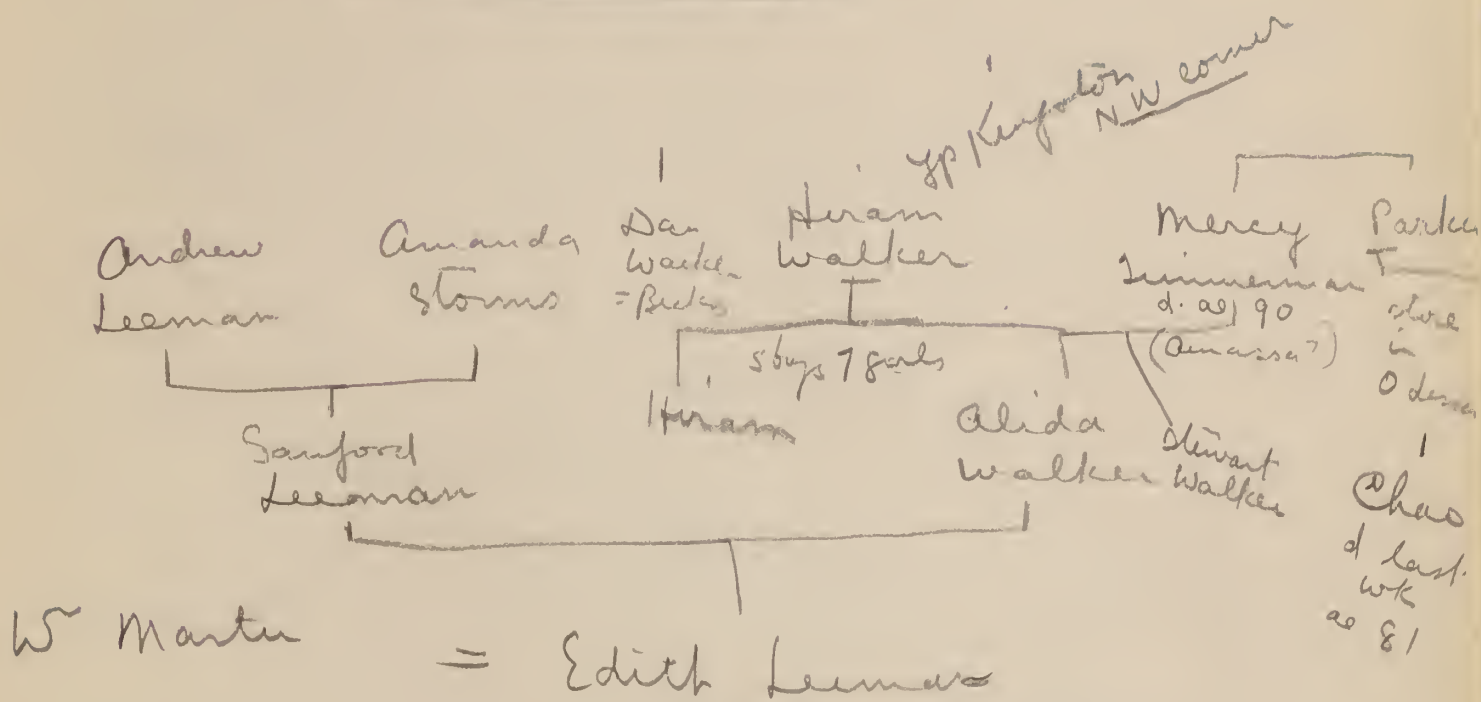 yp Kingston
NW corner
Andrew
Leeman
Amanda
Storms
Dan
Walker
=
Hiram
Walker
Mercy
Timmerman
d. ae 90
(Amassa?)
Parker
T
store
in
Odessa
5 boys 7 girls
Sanford
Leeman
Hiram
Alida
Walker
Stewart
Walker
Chas
d last
wk
ae 81
W Martin
= Edith Leeman